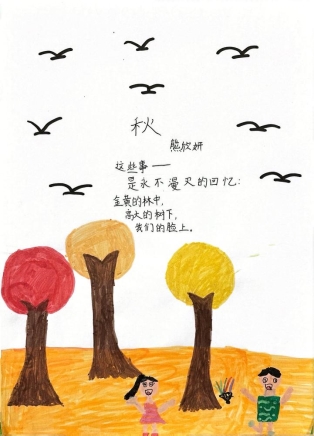 秋
熊欣妍
这些事——
是永不漫灭的回忆：
金黄的林中，
高大的树下，
我们的脸上。